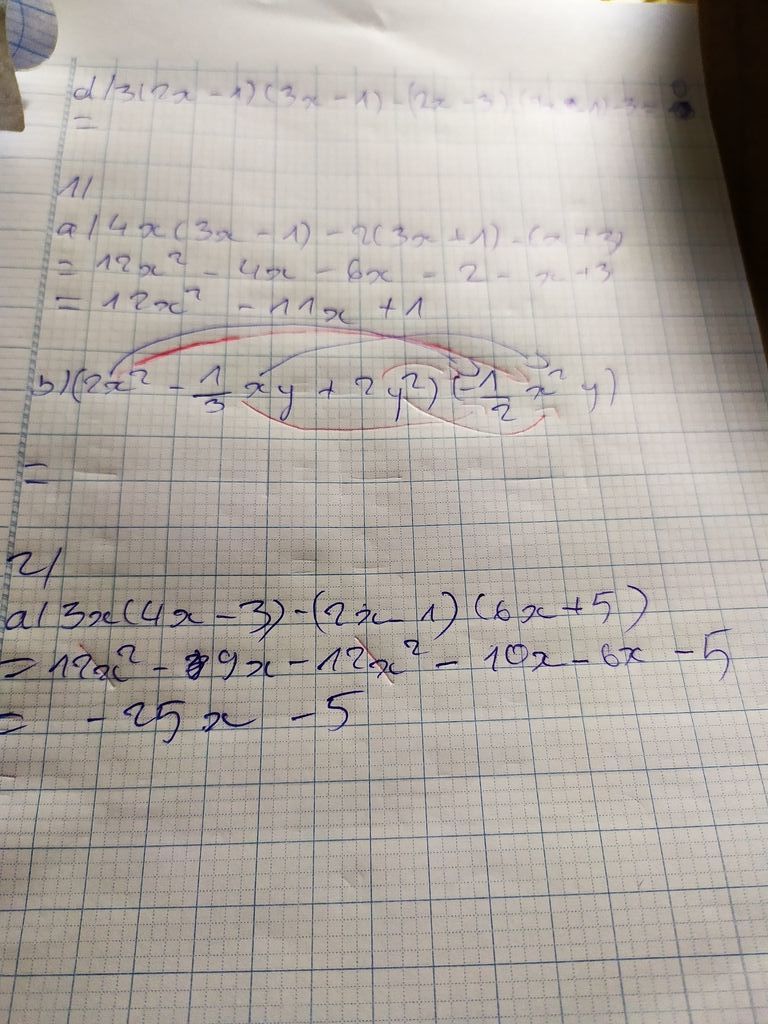 d/ 3(2x - 1)(3x - 1) - (2x - 3)
=
1/
a/ 4x(3x - 1) - 2(3x + 1) - (x + 3)
= 12x² - 4x - 6x - 2 - x + 3
= 12x² - 11x + 1
b) (2x² - 1/3 xy + 2y²) (-1/2 x² y)
=
2/
a/ 3x(4x - 3) - (2x - 1)(6x + 5)
= 12x² - 9x - 12x² - 10x - 6x - 5
= - 25x - 5